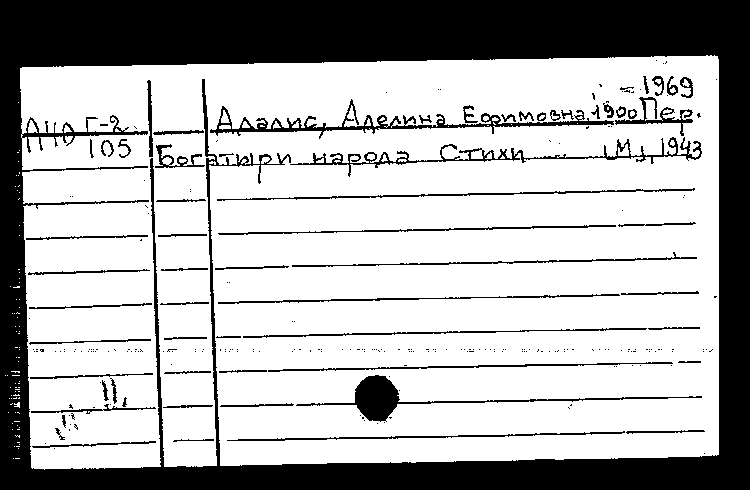 - 1969
Г-2 Адалис, Аделина Ефимовна, 1900 Пер.
105 Богатыри народа Стихи [М], 1943